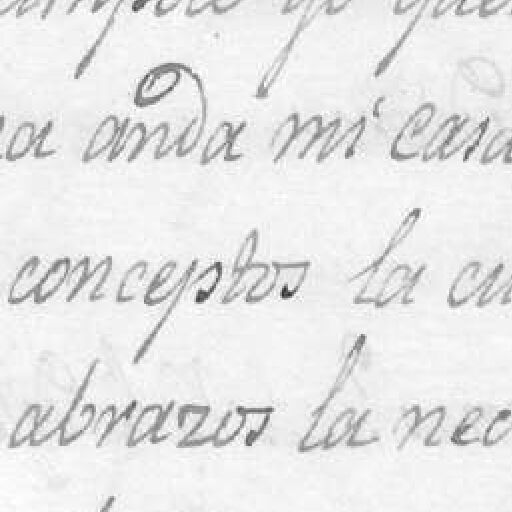 anda mi casa
conceptos la cu
abrazos la nec